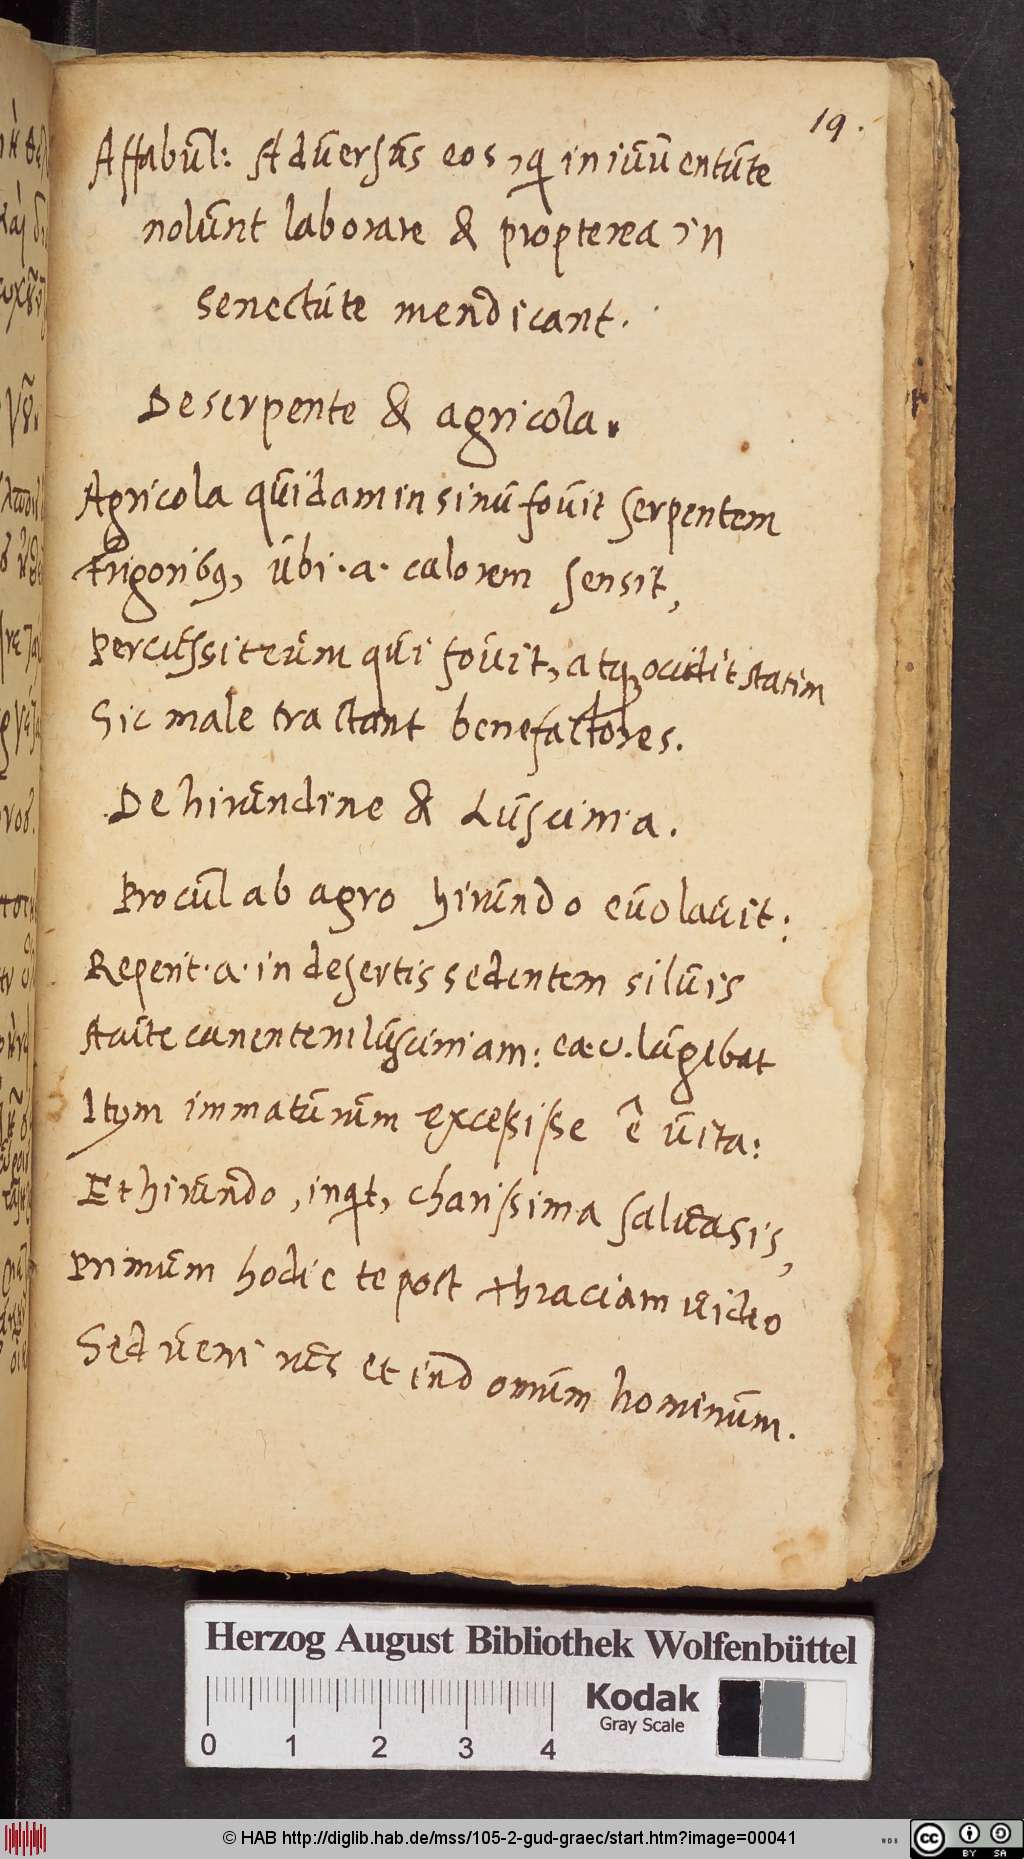 19.
Affabul: Adversus eos, q in iuventute
nolunt laborare & propterea in
senectute mendicant.
De serpente & agricola.
Agricola quidam in sinu fovit serpentem
Frigoribq, ubi. a. calorem sensit,
Percussit eum qui fovit, atq ocidit statim
Sic male tractant benefactores.
De hirundine & Luscinia.
Procul ab agro hirundo evolavit:
Reperit. a. in desertis sedentem silvis
Acute canentem lusciniam: ea. v. lugebat
Itym immaturum excessisse ê vita:
Et hirundo, inqt, charissima salva sis,
Primum hodie te post thraciam video
Sed veni rus et in domum hominum.
Herzog August Bibliothek Wolfenbüttel
0 1 2 3 4
Kodak
Gray Scale
© HAB http://diglib.hab.de/mss/105-2-gud-graec/start.htm?image=00041
cc BY SA